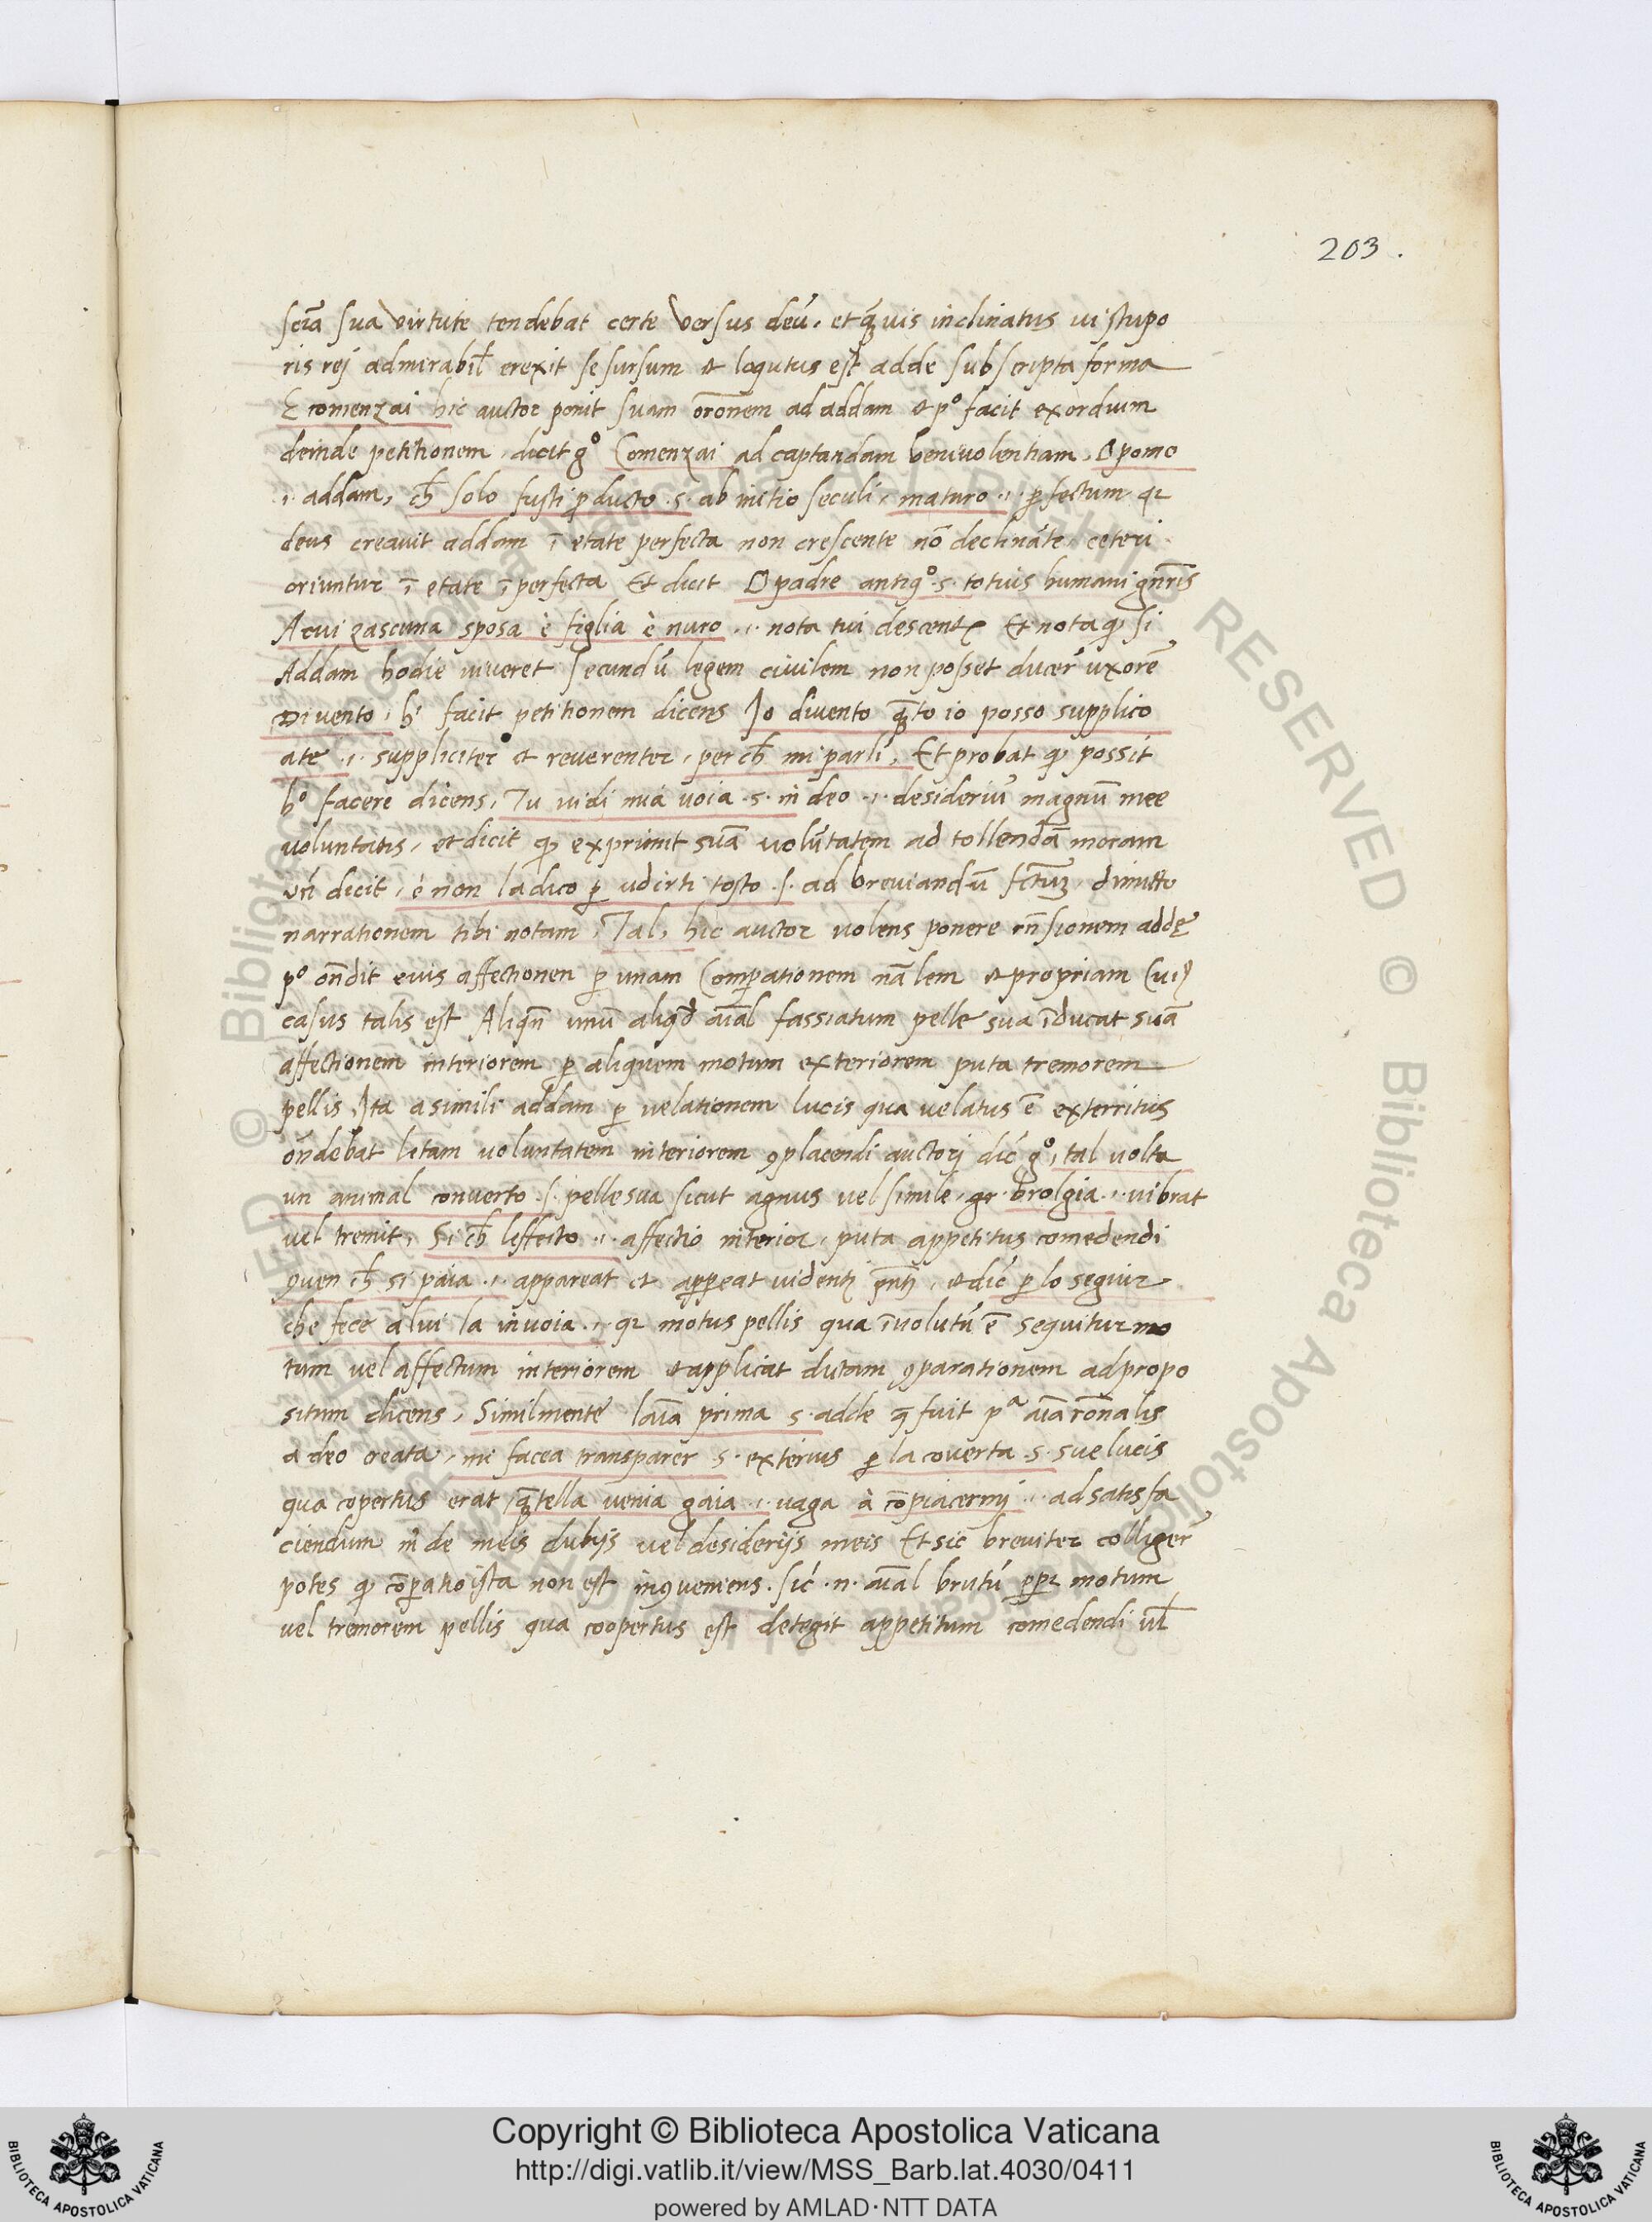 203.
scīa sua virtute tendebat certe versus deū. et q̄uis inclinatus ui stupo
ris rej admirabil̄ erexit se sursum et loqutus est adde subscripta forma
E comenzai hic auctor ponit suam orōnem ad addam et pº facit exordium
deinde petitionem, dicit gº Comenzai ad captandam beniuolentiam, O pomo
.i. addam, ch̄ solo fusti producto .s. ab initio seculi, maturo .i. perfectum qr
deus creauit addam ī etate perfecta non crescente nō declināte, ceteri
oriuntur ī etate īperfecta Et dicit O padre antiqº .s. totius humani gn̄ris
A cui zascuna sposa è figlia è nuro .i. nota tui descent Et nota q̄ si
Addam hodie uiueret secundū legem ciuilem non posset ducer̄ uxorē
Diuento, hⁱ facit petitionem dicens Jo diuento q̄to io posso supplico
ate .i. suppliciter et reuerenter, per ch̄ mi parli, Et probat q̄ possit
hº facere dicens, Tu uidi mia uoia .s. in deo .i. desideriū magnū mee
voluntatis, et dicit q̄ exprimit suā volūtatem ad tollendā moram
vn̄ dicit, è non la dico p̄ udirti tosto .s. ad breuiandū dimitto
narrationem tibi notam, Tal, hic auctor uolens ponere rn̄sionem addę
pº on̄dit euis affectionen p̄ unam Comp̄ationem nālem et propriam cui
casus talis est Aliqn̄ unū aliqd̄ aīal fassiatum pelle sua īducat suā
affectionem interiorem p̄ aliquem motum exteriorem puta tremorem
pellis, Ita a simili addam p̄ uelationem lucis qua uelatus ē exterritus
on̄debat letam uoluntatem interiorem 9placendi auctorj dic̄ gº, tal uolta
un animal conuerto .s. pelle sua sicut agnus vel simile, gr. brolgia .i. uibrat
uel tremit, Si ch̄ leffecto .i. affectio interior, puta appetitus comedendi
9uen ch̄ si paia .i. appareat et app̄eat uidenti, et dic̄ p̄ lo seguir
che fece a lui la inuoia .i. qr motus pellis qua īuolutū ē sequitur mo
tum vel affectum interiorem et applicat dictam 9parationem ad propo
situm dicens, Similmente laīa prima .s. adde q̄ fuit pª aīa rōnalis
a deo creata, mi facea transparer .s. exterius p̄ la couerta .s. sue lucis
qua copertus erat, q̄tella uenia gaia .i. uaga à cōpiacermj .i. ad satisfa
ciendum m̄ de meis dubijs uel desiderijs meis Et sic breuiter colliger̄
potes q̄ cōp̄atio ista non est in9ueniens. sic̄ .n. aīal brutū motum
uel tremorem pellis qua coopertus est detegit appetitum comedendi ul̄
Copyright © Biblioteca Apostolica Vaticana
http://digi.vatlib.it/view/MSS_Barb.lat.4030/0411
powered by AMLAD·NTT DATA